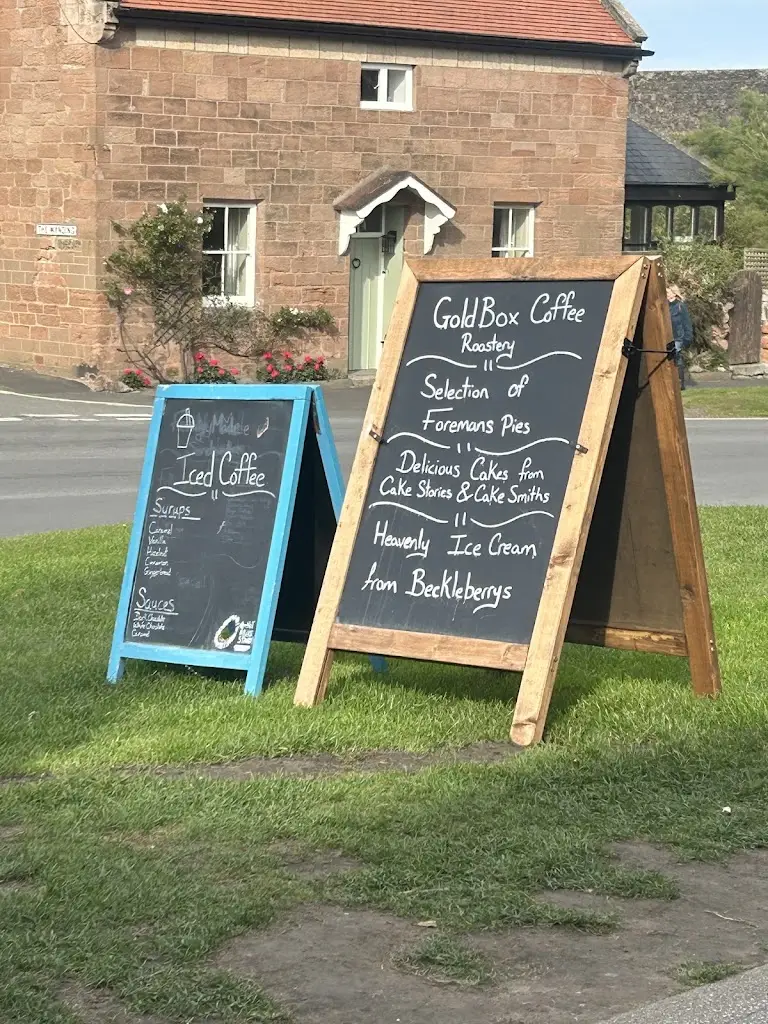 THE WYNDING
Iced Coffee
Syrups
Caramel
Vanilla
Hazelnut
Cinnamon
Gingerbread
Sauces
Dark Chocolate
White Chocolate
Caramel
GoldBox Coffee
Roastery
Selection of
Foremans Pies
Delicious Cakes from
Cake Stories & Cake Smiths
Heavenly Ice Cream
from Beckleberrys